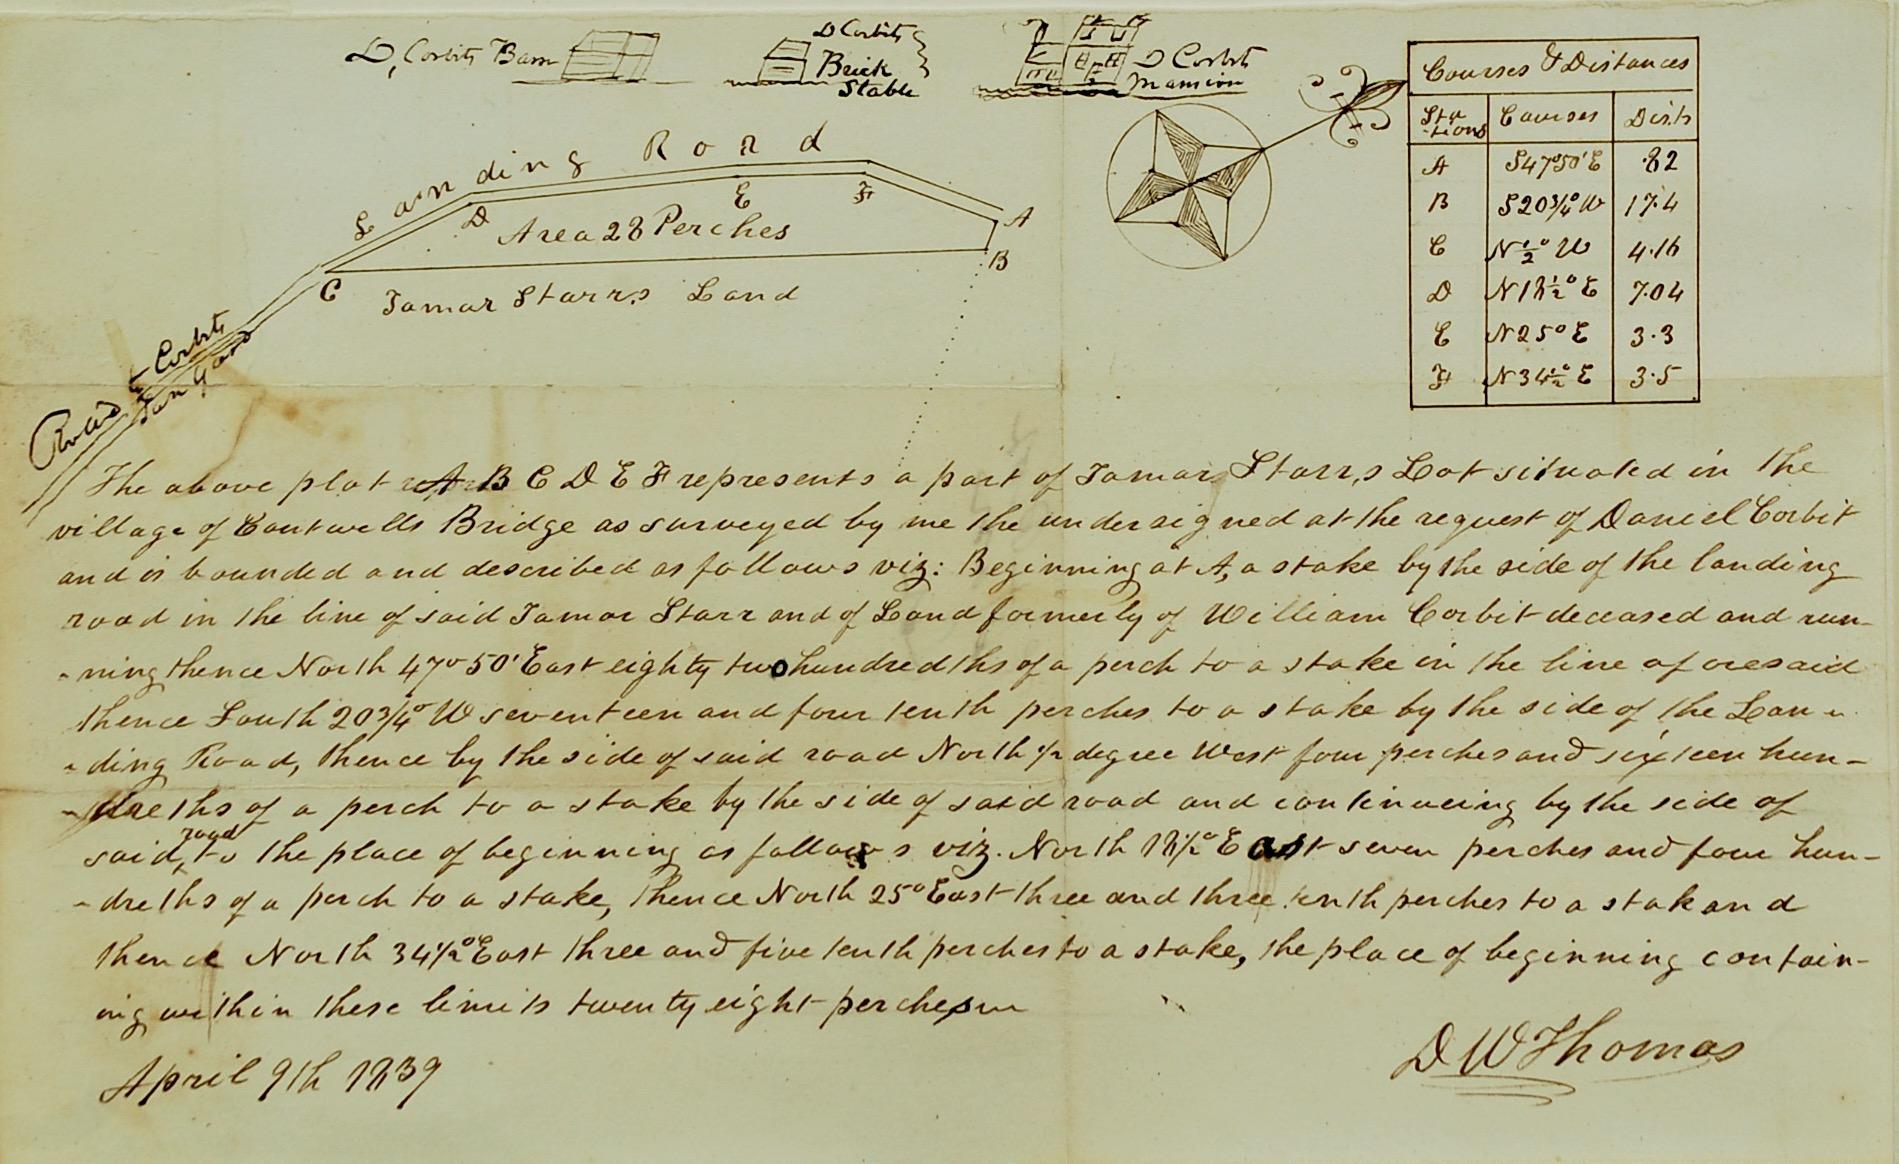 D, Corbits Barn
D Corbits
Brick
Stable
D Corbits
Mansion
Landing Road
D
E
F
A
Area 28 Perches
B
C
Tamar Starr,s Land
Road to Corbits
Tan Yard
Courses & Distances
Sta
-tions
Courses
Dists
A S47°50'E .82
B S20¾°W 17.4
C N½°W 4.16
D N18½°E 7.04
E N25°E 3.3
F N34½°E 3.5
The above plat A B C D E F represents a part of Tamar Starr,s Lot situated in the
village of Cantwells Bridge as surveyed by me the undersigned at the request of Daniel Corbit
and is bounded and described as follows viz: Beginning at A, a stake by the side of the landing
road in the line of said Tamar Starr and of Land formerly of William Corbit deceased and run-
-ning thence North 47° 50' East eighty two hundredths of a perch to a stake in the line aforesaid
thence South 20¾° W seventeen and four tenth perches to a stake by the side of the Lan-
-ding Road, thence by the side of said road North ½ degree West four perches and sixteen hun-
-dreths of a perch to a stake by the side of said road and continueing by the side of
said road to the place of beginning as follows viz. North 18½° East seven perches and four hun-
-dreths of a perch to a stake, thence North 25° East three and three tenth perches to a stak and
thence North 34½° East three and five tenth perches to a stake, the place of beginning contain-
ing within these limits twenty eight perches
April 9th 1839
D W Thomas